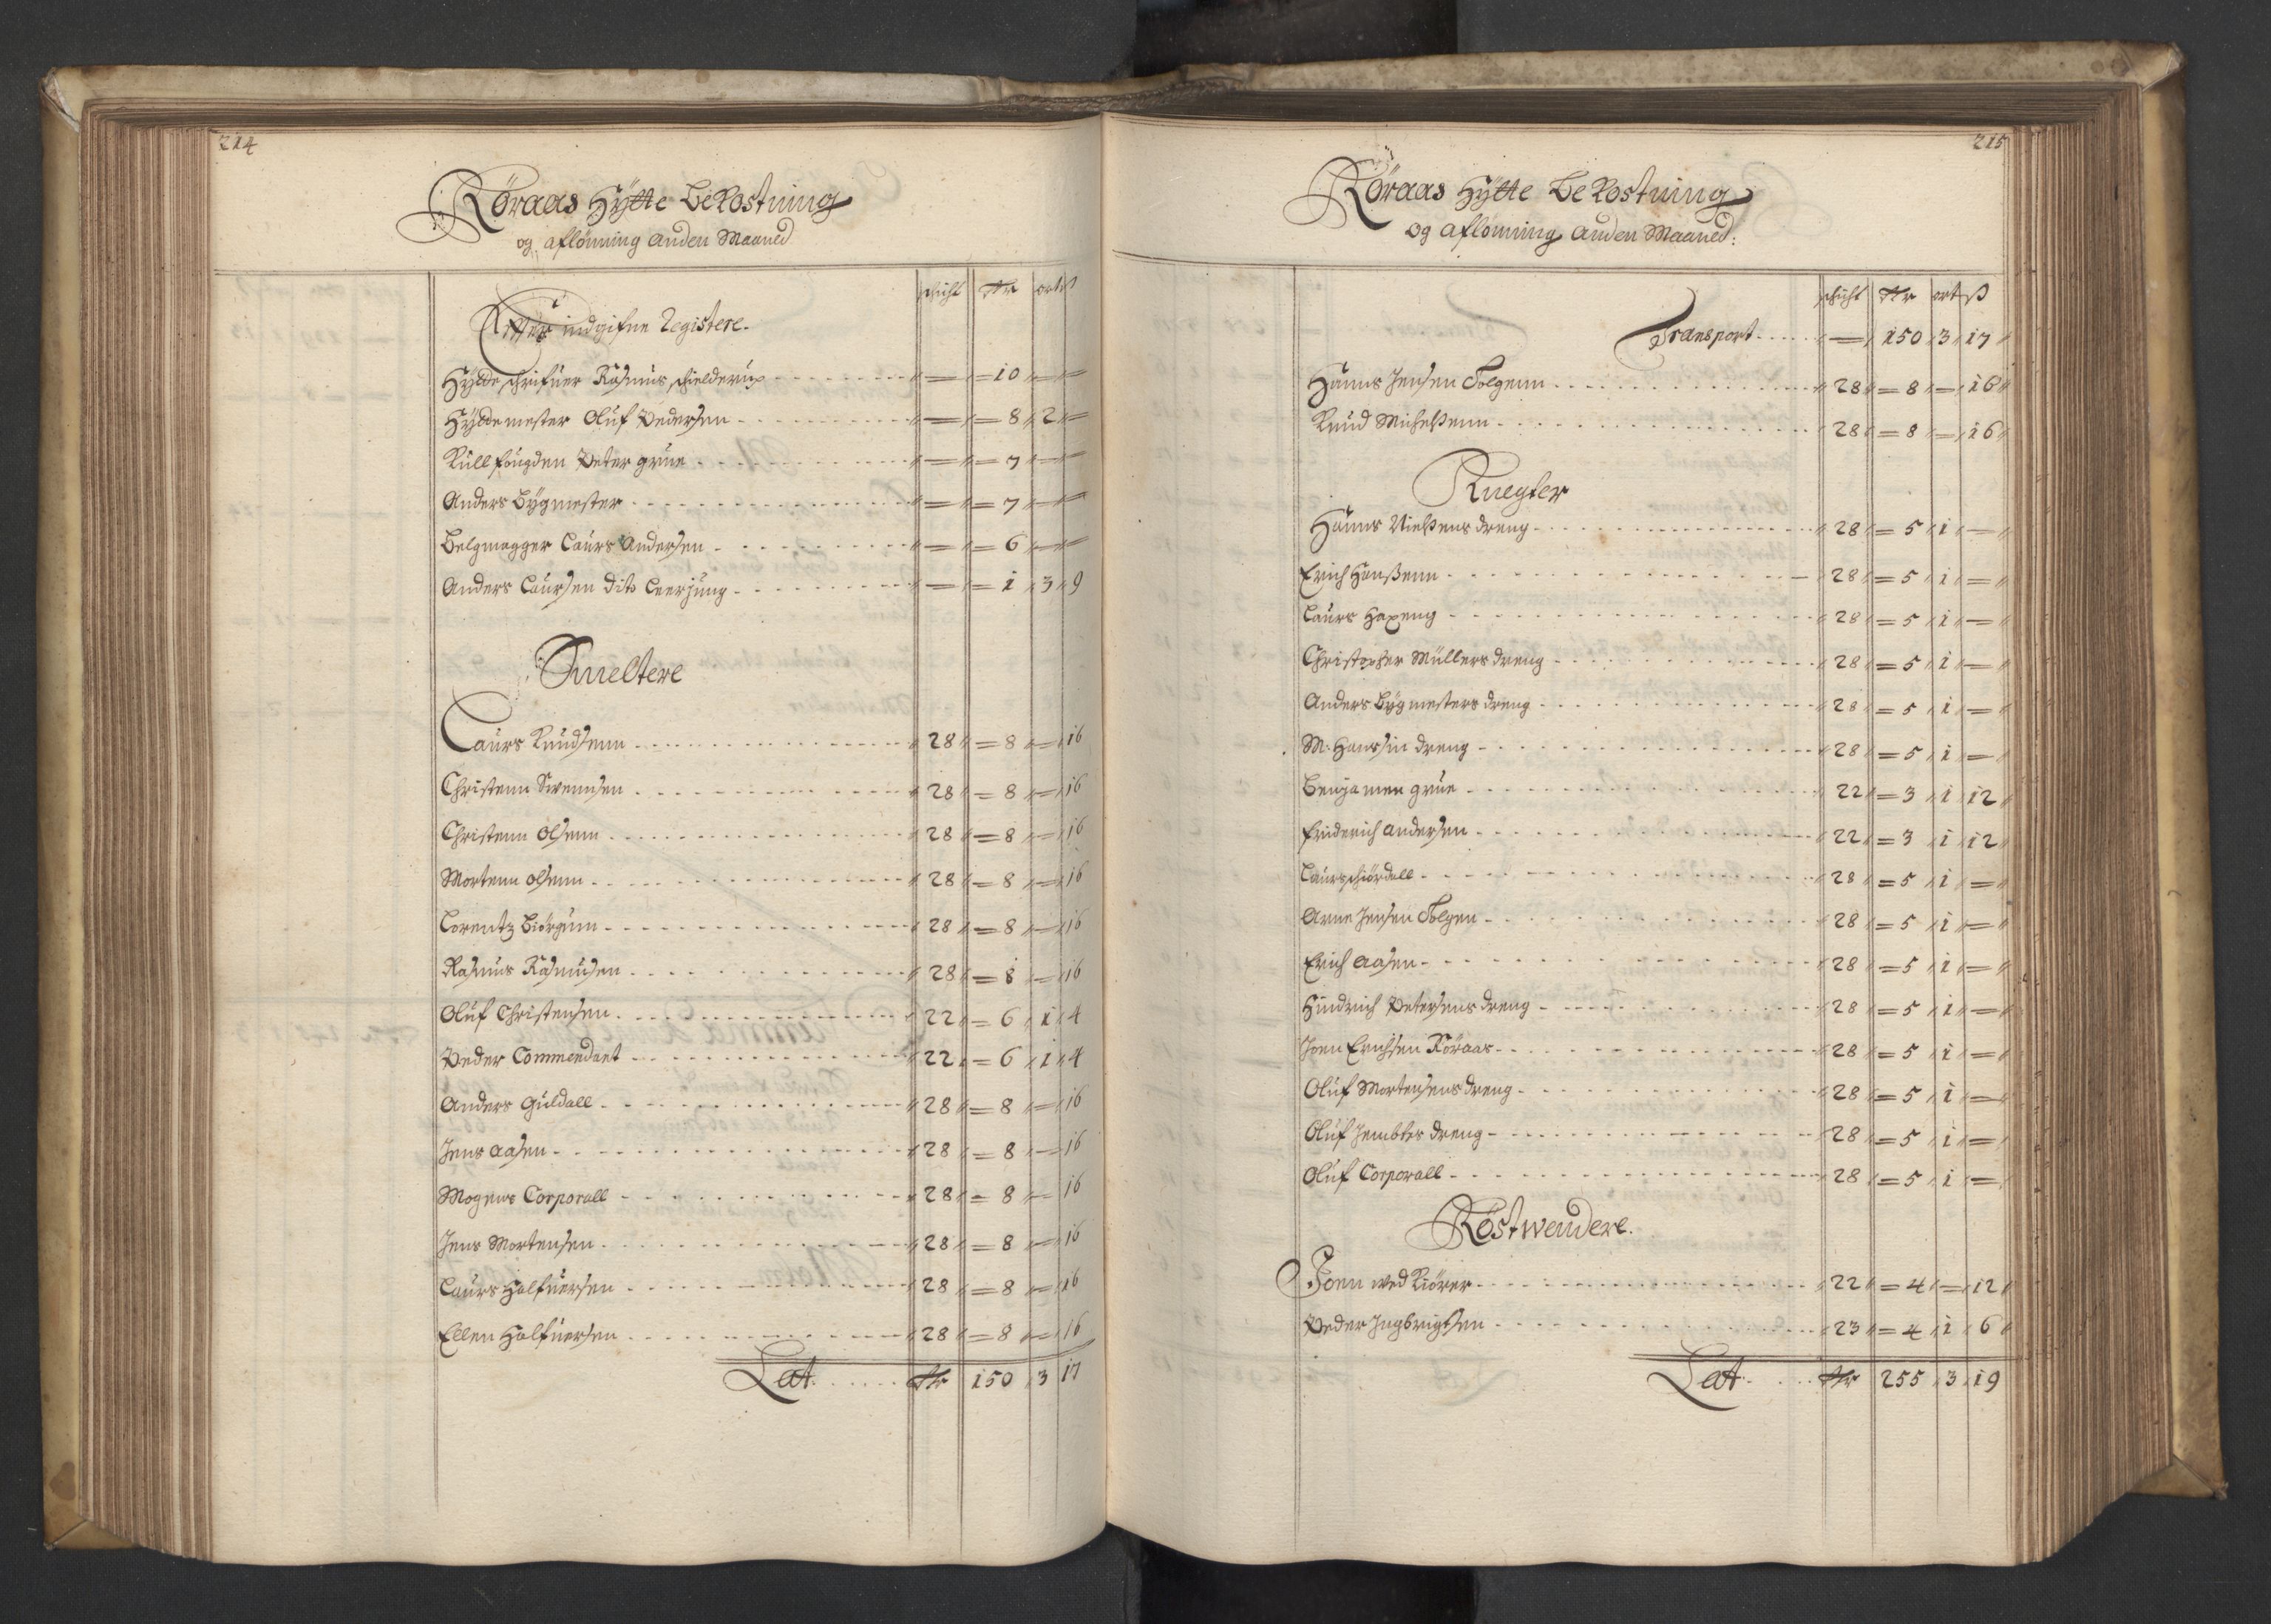 214
Röraas Hytte Bekostning
og aflönning anden Maaned
schicht Rdr ort ß
Effter indgifne Registere.
Hytteschrifuer Rasmus schielderup - = 10 - -
Hyttemester Oluf Pedersen - = 8 2 -
Kullfougden Peter grüe - = 7 - -
Anders Bygmester - = 7 - -
Belgmagger Laurs Andersen - = 6 - -
Anders Laursen dito Leerjung - = 1 3 9
Smeltere
Laurs Knudsenn 28 = 8 - 16
Christenn Svennsen 28 = 8 - 16
Christenn Olsenn 28 = 8 - 16
Mortenn Olsenn 28 = 8 - 16
Lorentz Biörgum 28 = 8 - 16
Rasmus Rasmusen 28 = 8 - 16
Oluf Christensen 22 = 6 1 4
Peder Commendant 22 = 6 1 4
Anders Guldall 28 = 8 - 16
Jens Aasen 28 = 8 - 16
Mogens Corporall 28 = 8 - 16
Jens Mortensen 28 = 8 - 16
Laurs Halfuersen 28 = 8 - 16
Ellen Halfuersen 28 = 8 - 16
Lat Rdr 150 3 17
215
Röraas Hytte Bekostning
og aflönning anden Maaned:
schicht Rdr ort ß
Transport - 150 3 17
Hanns Jensen Tolgenn 28 = 8 - 16
Knud Michelßenn 28 = 8 - 16
Knegter
Hanns Nielßens dreng 28 = 5 1 -
Erich Hanßenn 28 = 5 1 -
Laurs Haxeng 28 = 5 1 -
Christopher Müllers dreng 28 = 5 1 -
Anders Bygmesters dreng 28 = 5 1 -
M: Hanssin dreng 28 = 5 1 -
Benjamen grüe 22 = 3 1 12
Friderich Andersen 22 = 3 1 12
Laurs schiördall 28 = 5 1 -
Arne Jensen Tolgen 28 = 5 1 -
Erich Aasen 28 = 5 1 -
Hindrich Petersens dreng 28 = 5 1 -
Joen Erichsen Röraas 28 = 5 1 -
Oluf Mortensens dreng 28 = 5 1 -
Oluf Jembtes dreng 28 = 5 1 -
Oluf Corporall 28 = 5 1 -
Röstwendere.
Joen wed Kiörer 22 = 4 - 12
Peder Ingbrigtsen 23 = 4 1 6
Lat Rdr 255 3 19